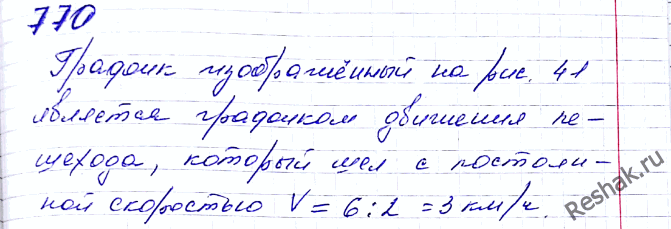 770
График изображённый на рис. 41
является графиком движения пе-
шехода, который шел с постоян-
ной скоростью V = 6 : 2 = 3 км/ч.
Reshak.ru